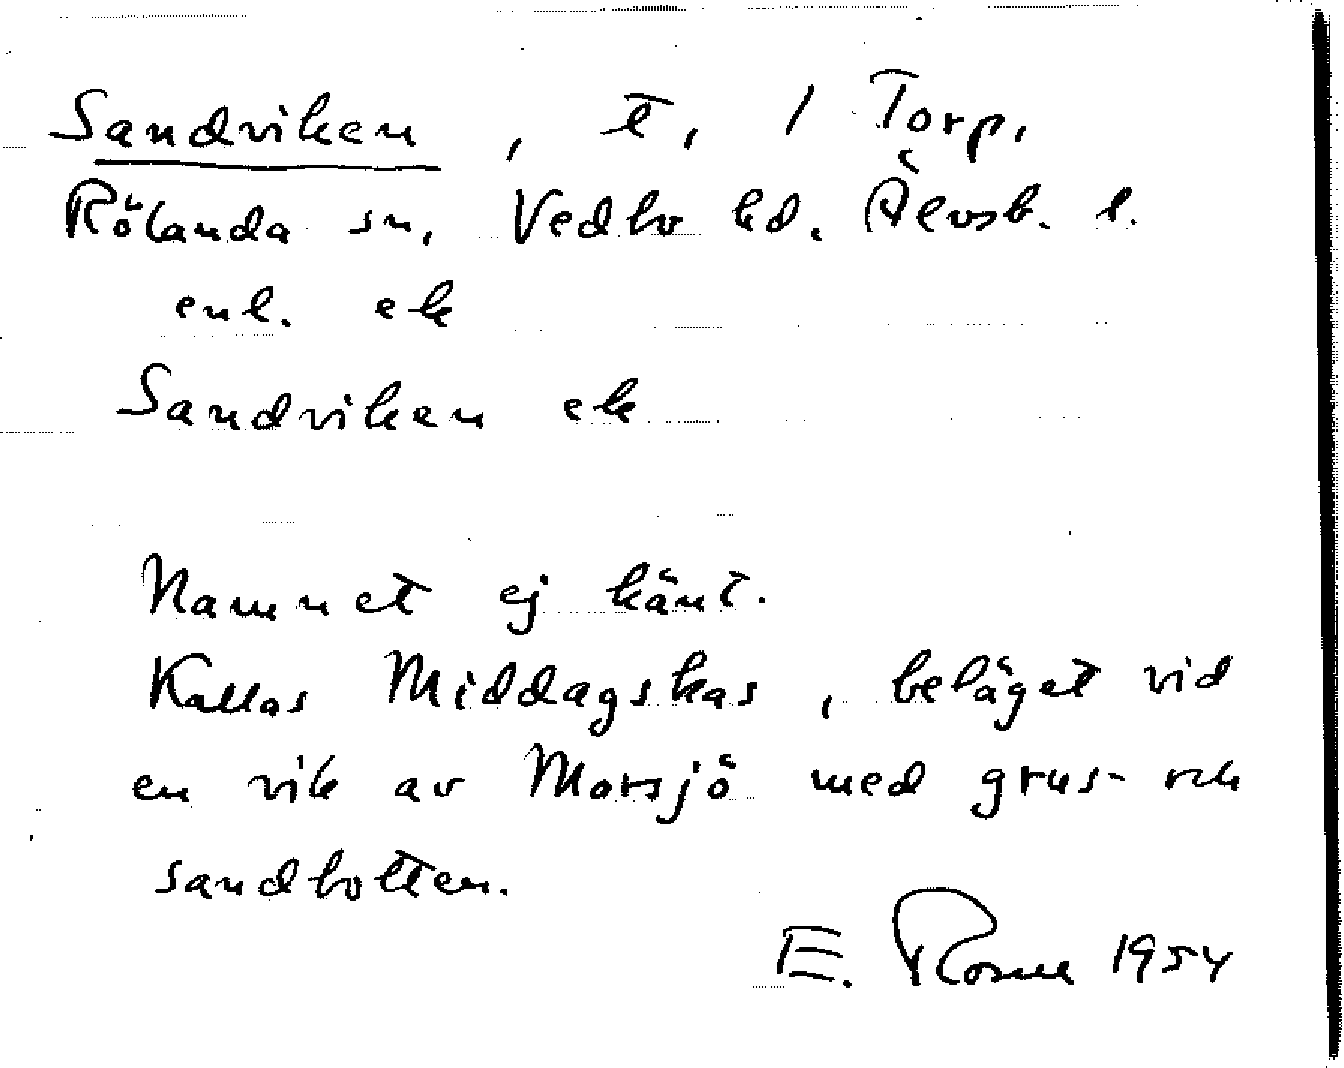 Sandviken, t, / Torp.
Rölanda sn, Vedbo hd. Älvsb. l.
enl. ek
Sandviken ek
Namnet ej känt.
Kallas Middagskas, beläget vid
en vik av Morsjö med grus- och
sandbotten.
E. 1954